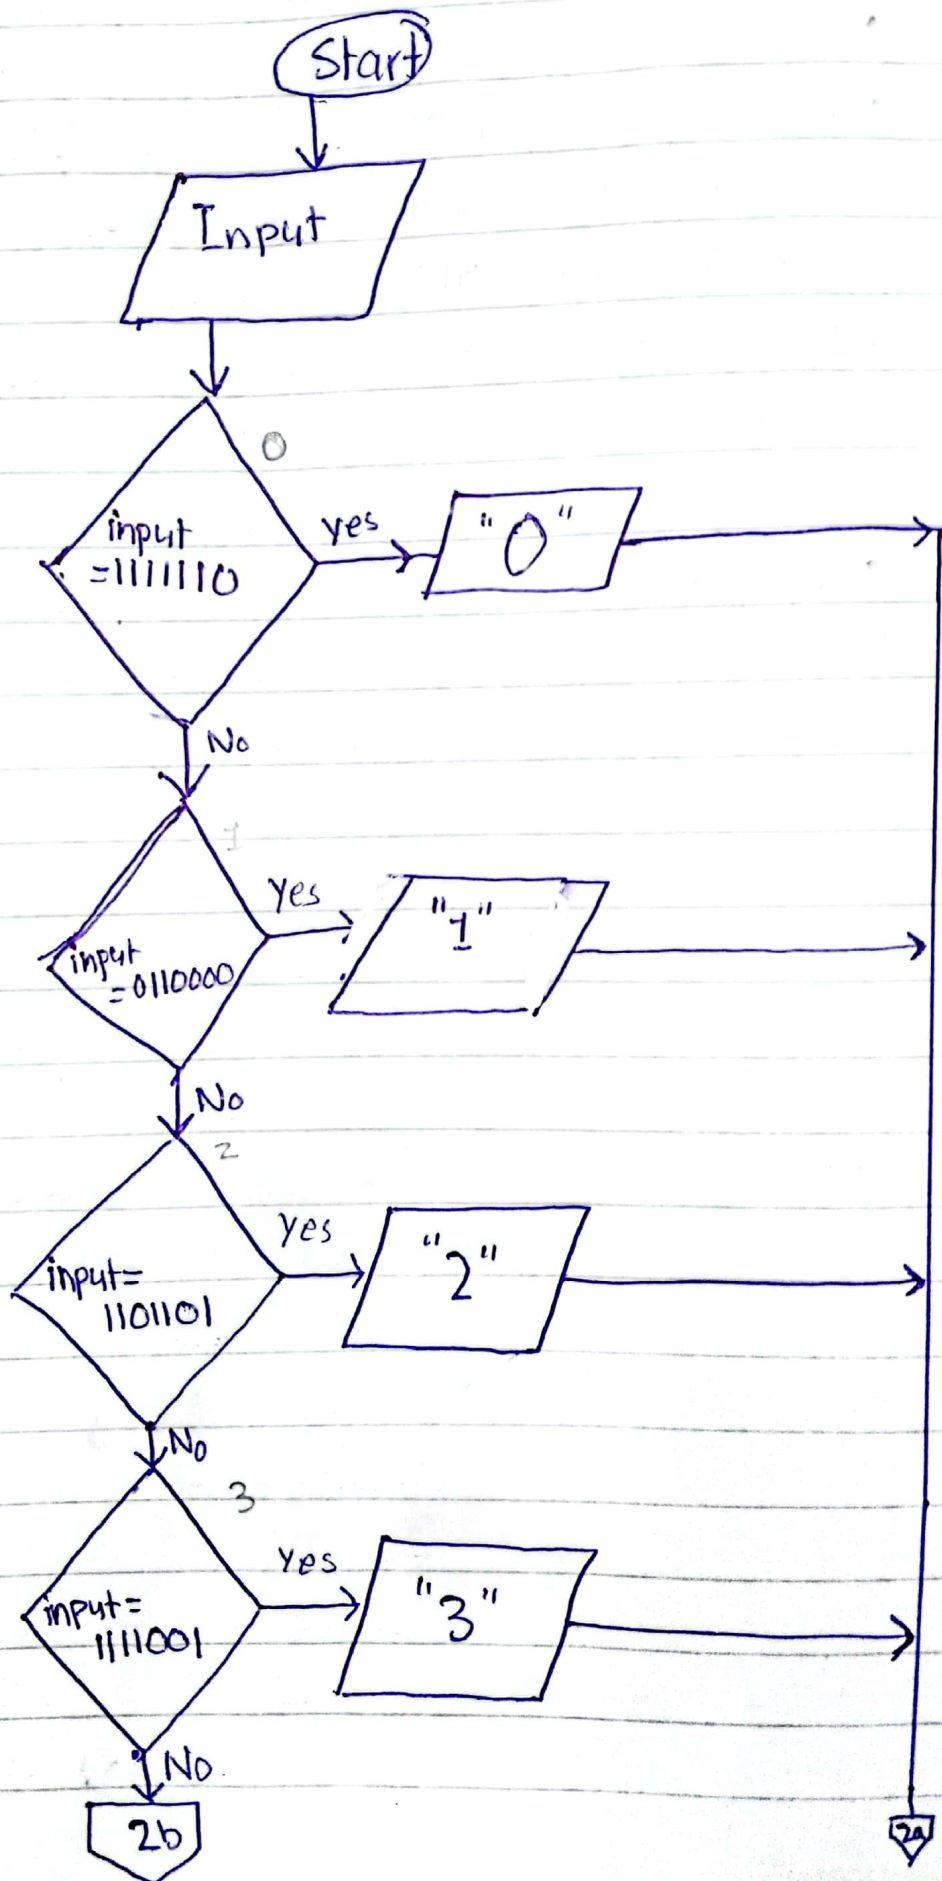 Start
Input
0
input
=1111110
yes
"0"
No
1
input
=0110000
Yes
"1"
No
2
input=
1101101
Yes
"2"
No
3
input=
1111001
Yes
"3"
No
2b
2a